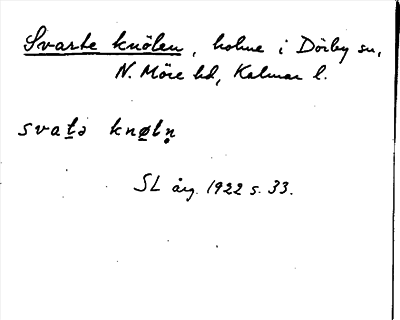 Svarte knölen, holme i Dörby sn,
N. Möre hd, Kalmar l.
svat̲ə knø̲ln̥
SL årg. 1922 s. 33.